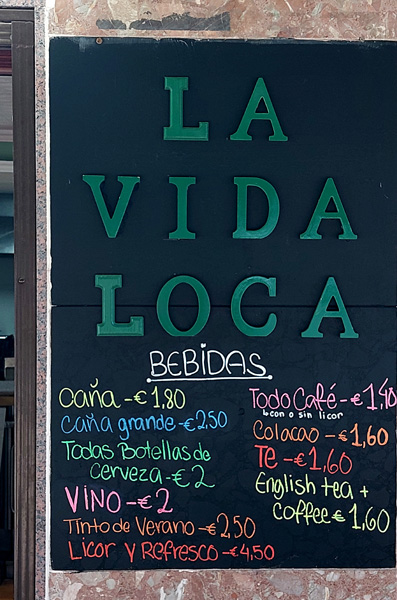 LA
VIDA
LOCA
BEBIDAS
Caña - € 1,80
Caña grande - € 2,50
Todas Botellas de
cerveza - € 2
VINO - € 2
Tinto de Verano - € 2,50
Licor y Refresco - € 4,50
Todo Café - € 1,40
↳ con o sin licor
Colacao - € 1,60
Te - € 1,60
English tea +
coffee € 1,60